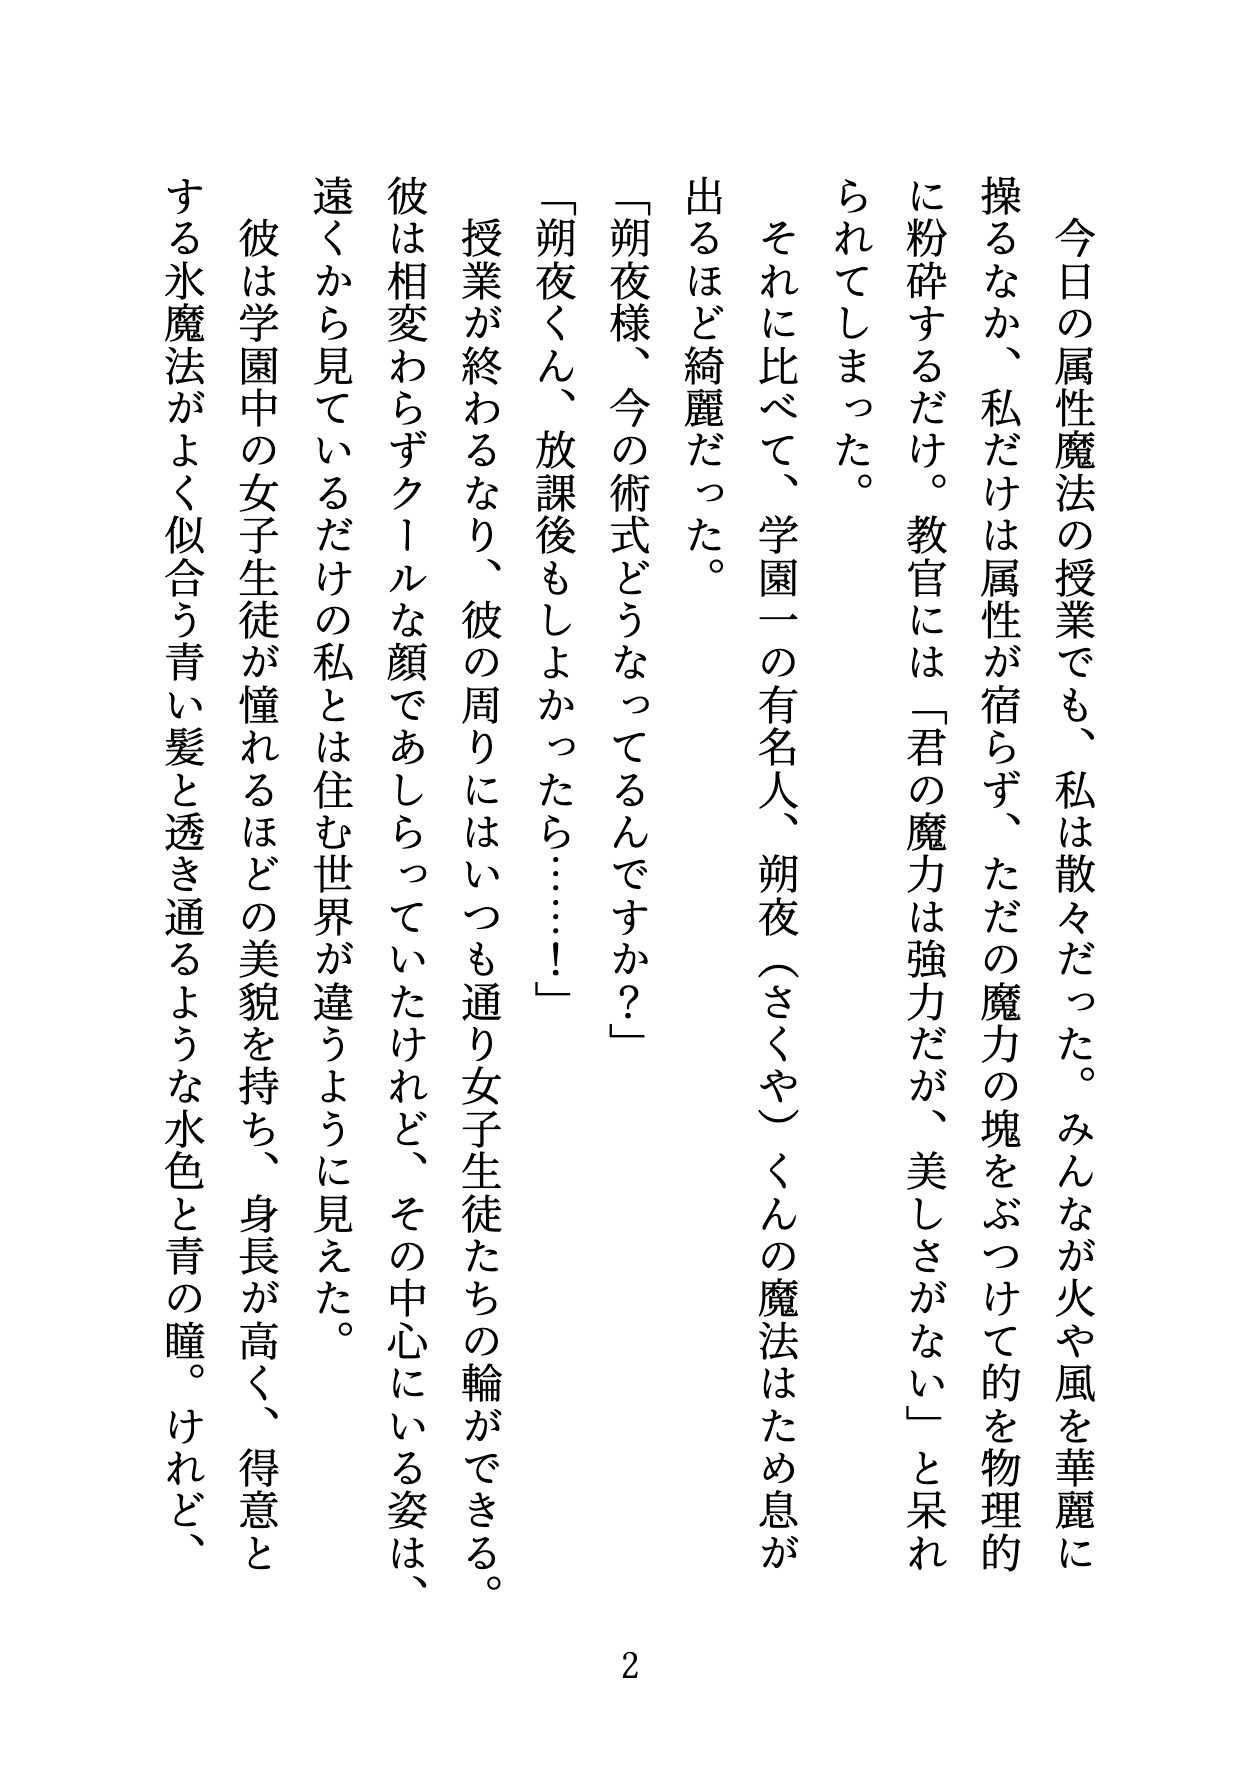 今日の属性魔法の授業でも、私は散々だった。みんなが火や風を華麗に
操るなか、私だけは属性が宿らず、ただの魔力の塊をぶつけて的を物理的
に粉砕するだけ。教官には「君の魔力は強力だが、美しさがない」と呆れ
られてしまった。
　それに比べて、学園一の有名人、朔夜（さくや）くんの魔法はため息が
出るほど綺麗だった。
「朔夜様、今の術式どうなってるんですか？」
「朔夜くん、放課後もしよかったら……！」
　授業が終わるなり、彼の周りにはいつも通り女子生徒たちの輪ができる。
彼は相変わらずクールな顔であしらっていたけれど、その中心にいる姿は、
遠くから見ているだけの私とは住む世界が違うように見えた。
　彼は学園中の女子生徒が憧れるほどの美貌を持ち、身長が高く、得意と
する氷魔法がよく似合う青い髪と透き通るような水色と青の瞳。けれど、
2